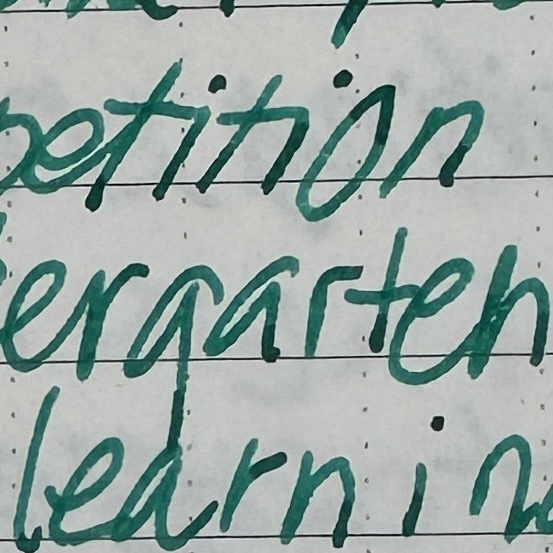 petition
ergarten
learnin